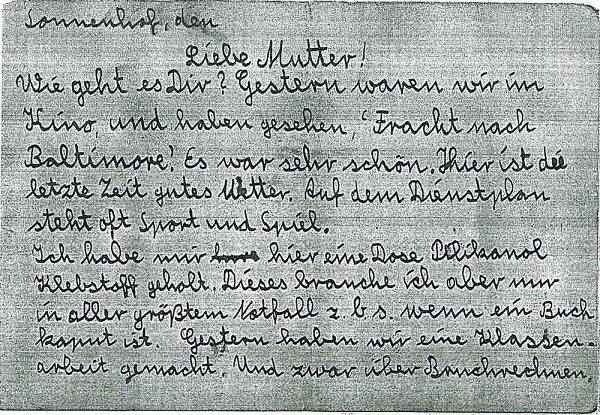 Sonnenhof, den
Liebe Mutter!
Wie geht es Dir? Gestern waren wir im
Kino, und haben gesehen, ‘Fracht nach
Baltimore’. Es war sehr schön. Hier ist die
letzte Zeit gutes Wetter. Auf dem Dienstplan
steht oft Sport und Spiel.
Ich habe mir hier eine Dose Pelikanol
Klebstoff geholt. Dieses brauche ich aber nur
in aller größtem Notfall z. b s. wenn ein Buch
kaput ist. Gestern haben wir eine Klassen-
arbeit gemacht. Und zwar über Bruchrechnen.